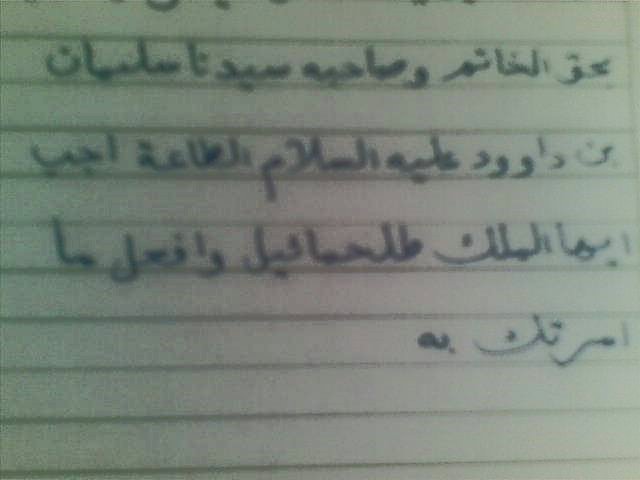 بحق الخاتم وصاحبه سيدنا سليمان
بن داوود عليه السلام الطاعة اجب
ايها الملك طلحمائيل وافعل ما
امرتك به